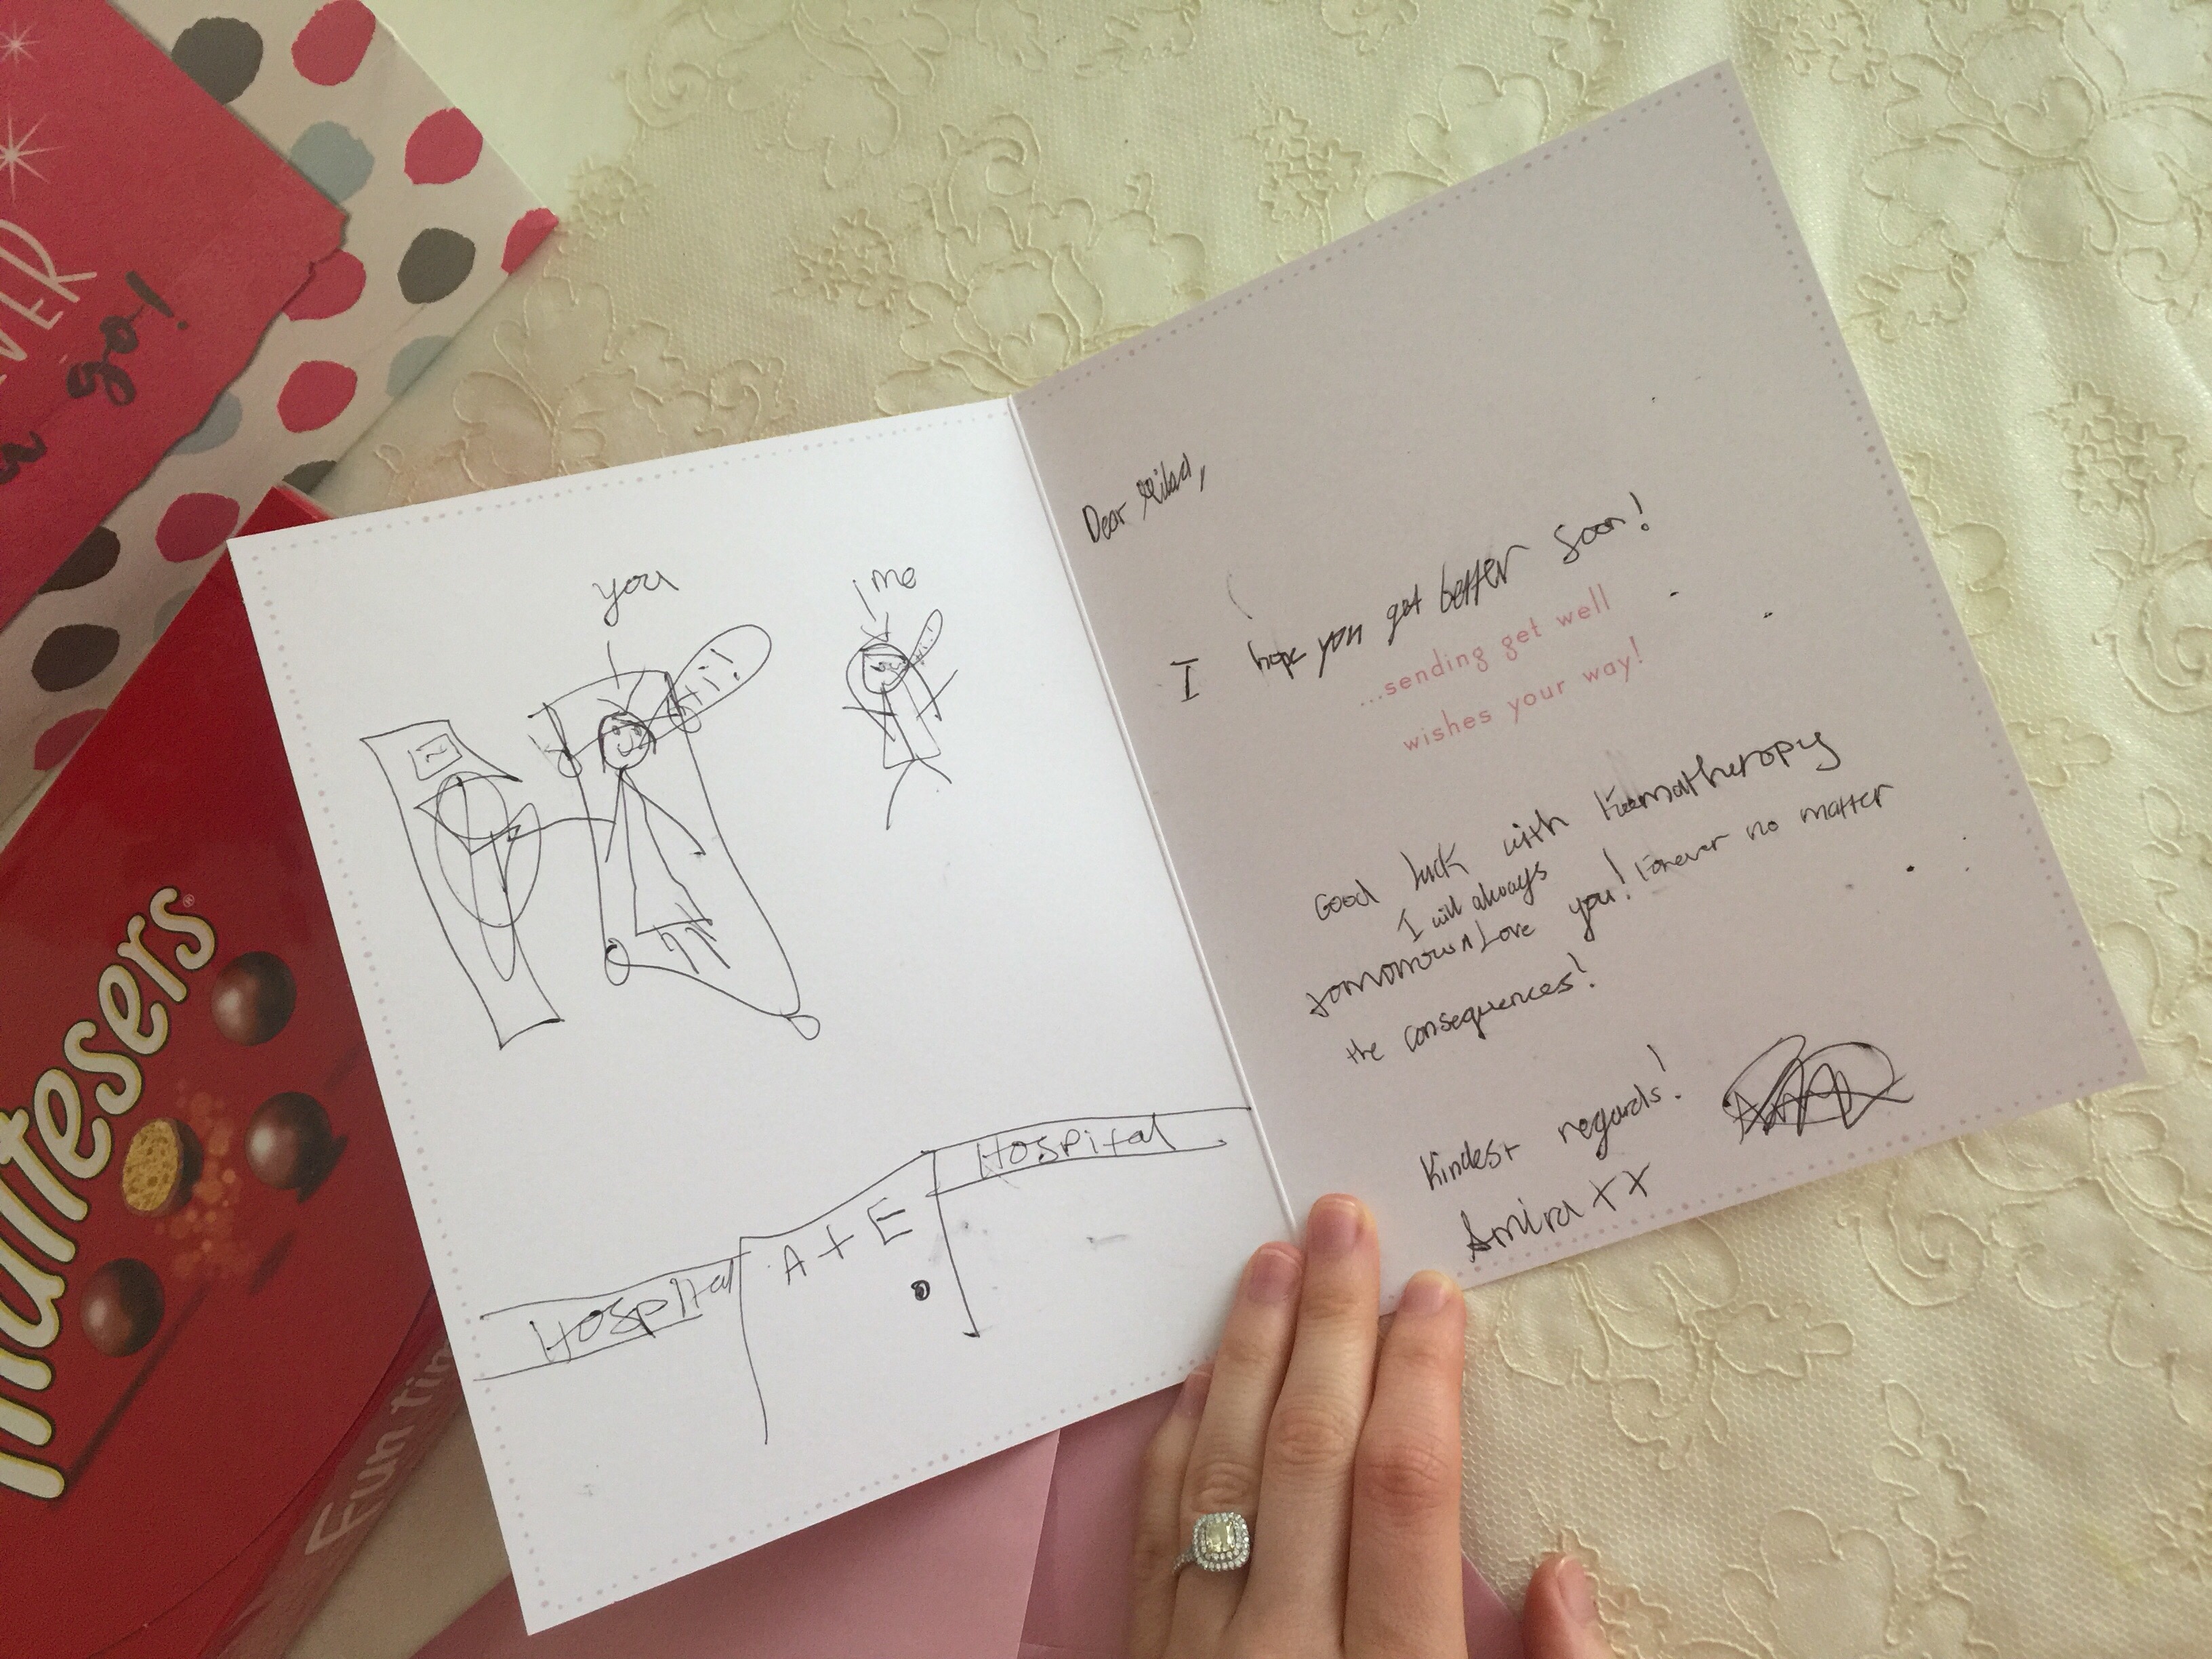 VER
go!
Maltesers®
Fun tim
you
me
Hi!
Hi!
Hospital
A + E
Hospital
Dear
I hope you get better soon!
...sending get well
wishes your way!
Good luck with Kemotheropy
I will always
tommorow ∧ Love you! Forever no matter
the consequences!
Kindest regards!
Amira xx